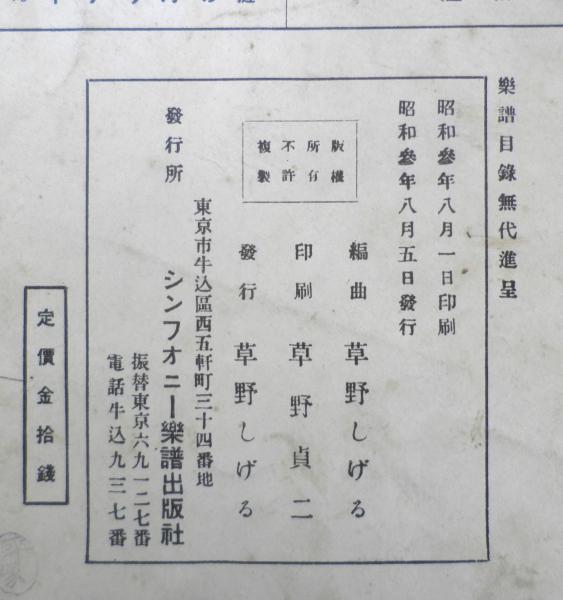 樂譜目錄無代進呈
昭和參年八月一日印刷
昭和參年八月五日發行
版權
所有
不許
複製
編曲 草野しげる
印刷 草野貞二
發行 草野しげる
東京市牛込區西五軒町三十四番地
發行所 シンフオニー樂譜出版社
振替東京六九一二七番
電話牛込九三七番
定價金拾錢